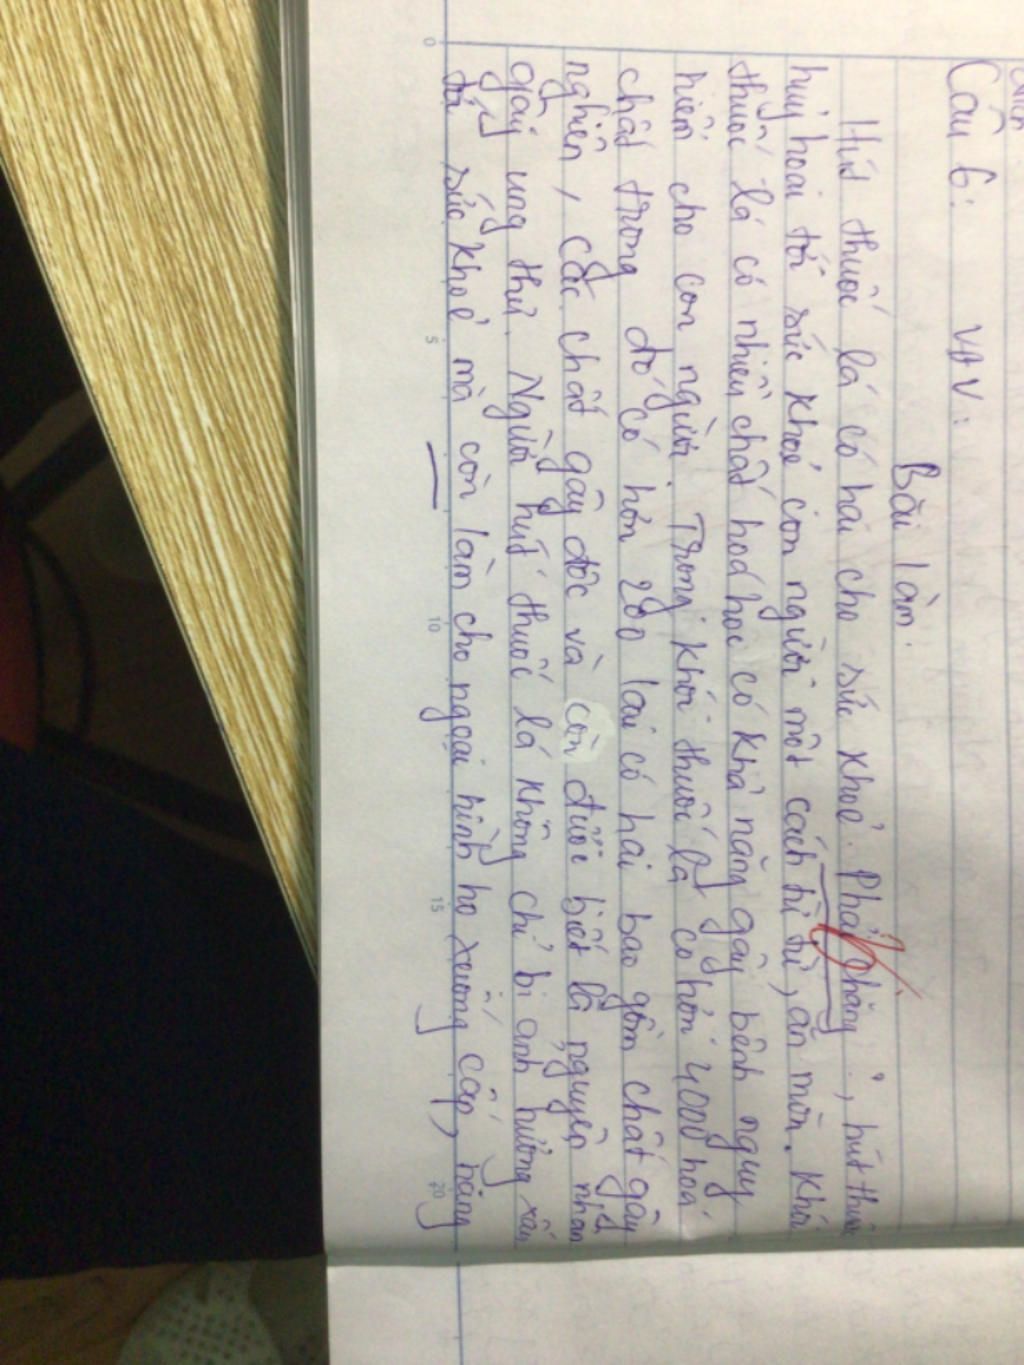 Câu 6: VĐV:
Bài làm.
Hút thuốc lá có hại cho sức khoẻ. Phải chăng, hút thuốc
huỷ hoại tới sức khoẻ con người một cách từ từ, ăn mòn. Khói
thuốc lá có nhiều chất hoá học có khả năng gây bệnh nguy
hiểm cho con người. Trong khói thuốc lá có hơn 4000 hoá
chất trong đó có hơn 200 loại có hại bao gồm chất gây
nghiện, các chất gây độc và còn được biết là nguyên nhân
gây ung thư. Người hút thuốc lá không chỉ bị ảnh hưởng xấu
tới sức khoẻ mà còn làm cho ngoại hình họ xuống cấp, hàng
0
5
10
15
20